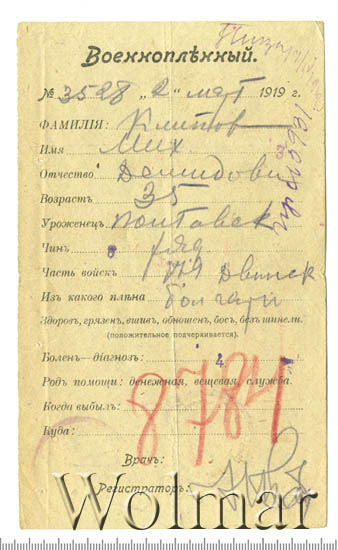 Военноплѣнный.
№ 3528 „2" март 1919 г.
ФАМИЛІЯ: Климов
Имя Мих
Отчество Демидови
Возрастъ 35
Уроженецъ Полтавск
Чинъ ряд
Часть войскъ Двинск
Изъ какого плѣна Болгаріи
Здоровъ, грязенъ, вшивъ, обношенъ, босъ, безъ шинели.
(положительное подчеркивается).
Боленъ—діагнозъ: 4
Родъ помощи: денежная, вещевая, служба.
Когда выбылъ:
Куда:
8784
Врачъ:
Регистраторъ:
Wolmar